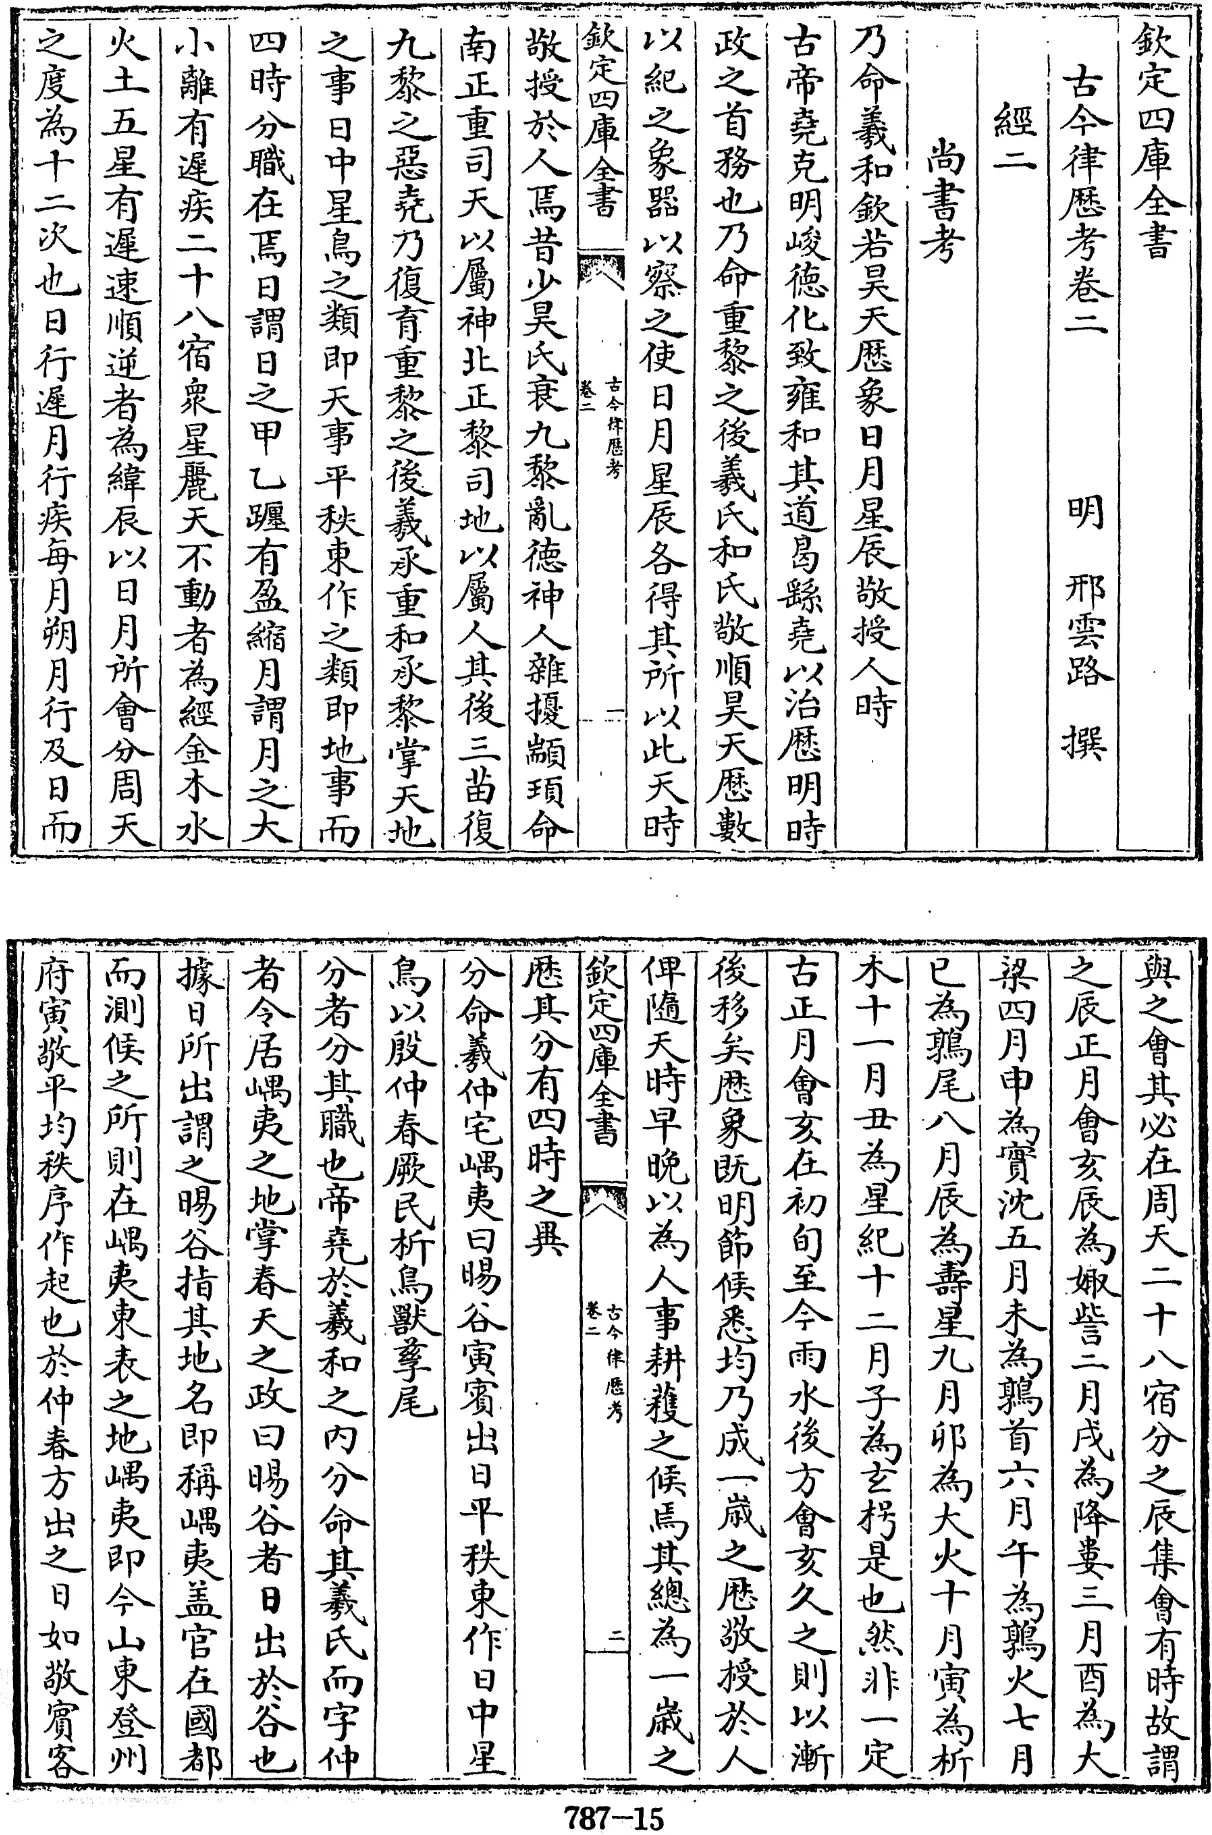 欽定四庫全書
古今律歴考卷二
明 邢雲路 撰
經二
尚書考
乃命羲和欽若昊天歴象日月星辰敬授人時
古帝堯克明峻德化致雍和其道曷繇堯以治歴明時
政之首務也乃命重黎之後羲氏和氏敬順昊天歴數
以紀之象器以察之使日月星辰各得其所以此天時
欽定四庫全書
古今律歴考
卷二
一
敬授於人焉昔少昊氏衰九黎亂德神人雜擾顓頊命
南正重司天以屬神北正黎司地以屬人其後三苗復
九黎之惡堯乃復育重黎之後羲承重和承黎掌天地
之事日中星鳥之類即天事平秩東作之類即地事而
四時分職在焉日謂日之甲乙躔有盈縮月謂月之大
小離有遲疾二十八宿衆星麗天不動者為經金木水
火土五星有遲速順逆者為緯辰以日月所會分周天
之度為十二次也日行遲月行疾每月朔月行及日而
與之會其必在周天二十八宿分之辰集會有時故謂
之辰正月會亥辰為娵訾二月戌為降婁三月酉為大
梁四月申為實沈五月未為鶉首六月午為鶉火七月
巳為鶉尾八月辰為壽星九月卯為大火十月寅為析
木十一月丑為星紀十二月子為玄枵是也然非一定
古正月會亥在初旬至今雨水後方會亥久之則以漸
後移矣歴象既明節候悉均乃成一歲之歴敬授於人
俾隨天時早晚以為人事耕穫之候焉其總為一歲之
欽定四庫全書
古今律歴考
卷二
二
歴其分有四時之異
分命羲仲宅嵎夷曰暘谷寅賓出日平秩東作日中星
鳥以殷仲春厥民析鳥獸孳尾
分者分其職也帝堯於羲和之内分命其羲氏而字仲
者令居嵎夷之地掌春天之政曰暘谷者日出於谷也
據日所出謂之暘谷指其地名即稱嵎夷盖官在國都
而測候之所則在嵎夷東表之地嵎夷即今山東登州
府寅敬平均秩序作起也於仲春方出之日如敬賓客
787-15